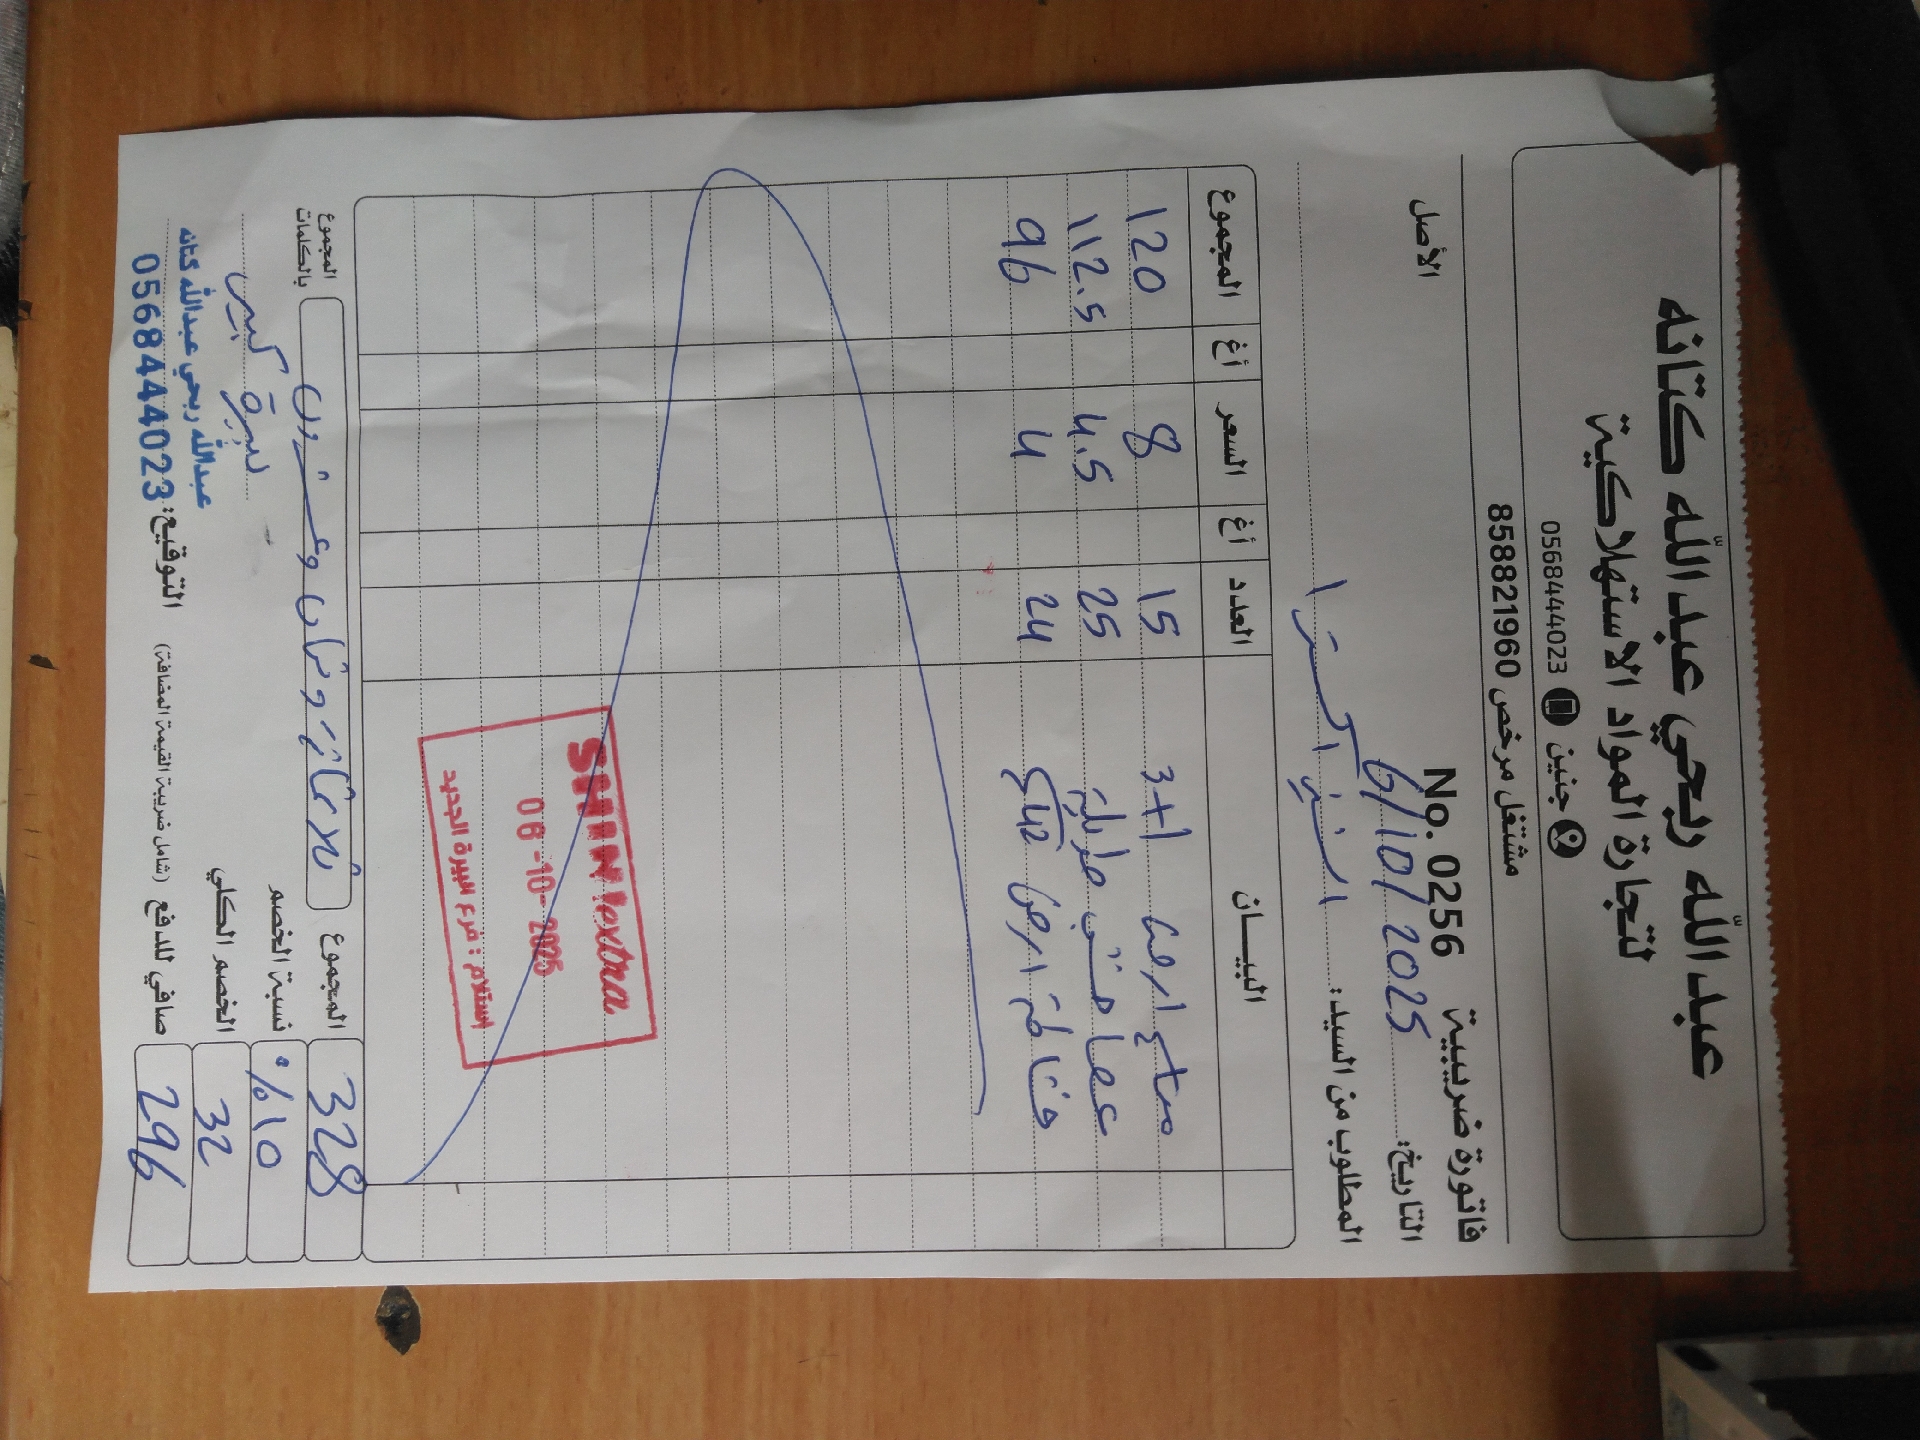 عبد الله ربحي عبد الله كتانه
لتجارة المواد الاستهلاكية
جنين 0568444023
مشتغل مرخص 858821960
فاتورة ضريبية No. 0256 الأصل
التاريخ: 6/10/2025
المطلوب من السيد: السنير اكسترا
البيـــان العدد أغ السعر أغ المجموع
ارضي 3+1 15 8 120
عصا خشب طويلة 25 4.5 112.5
ارضي 24 4 96
SHINI extra
06-10-2025
استلام: فرع البيرة الجديد
المجموع 328
المجموع بالكلمات وعشرون
نسبة الخصم %10
الخصم الكلي 32
صافي للدفع (شامل ضريبة القيمة المضافة) 296
التوقيع:
عبدالله ربحي عبدالله كتانه
0568444023